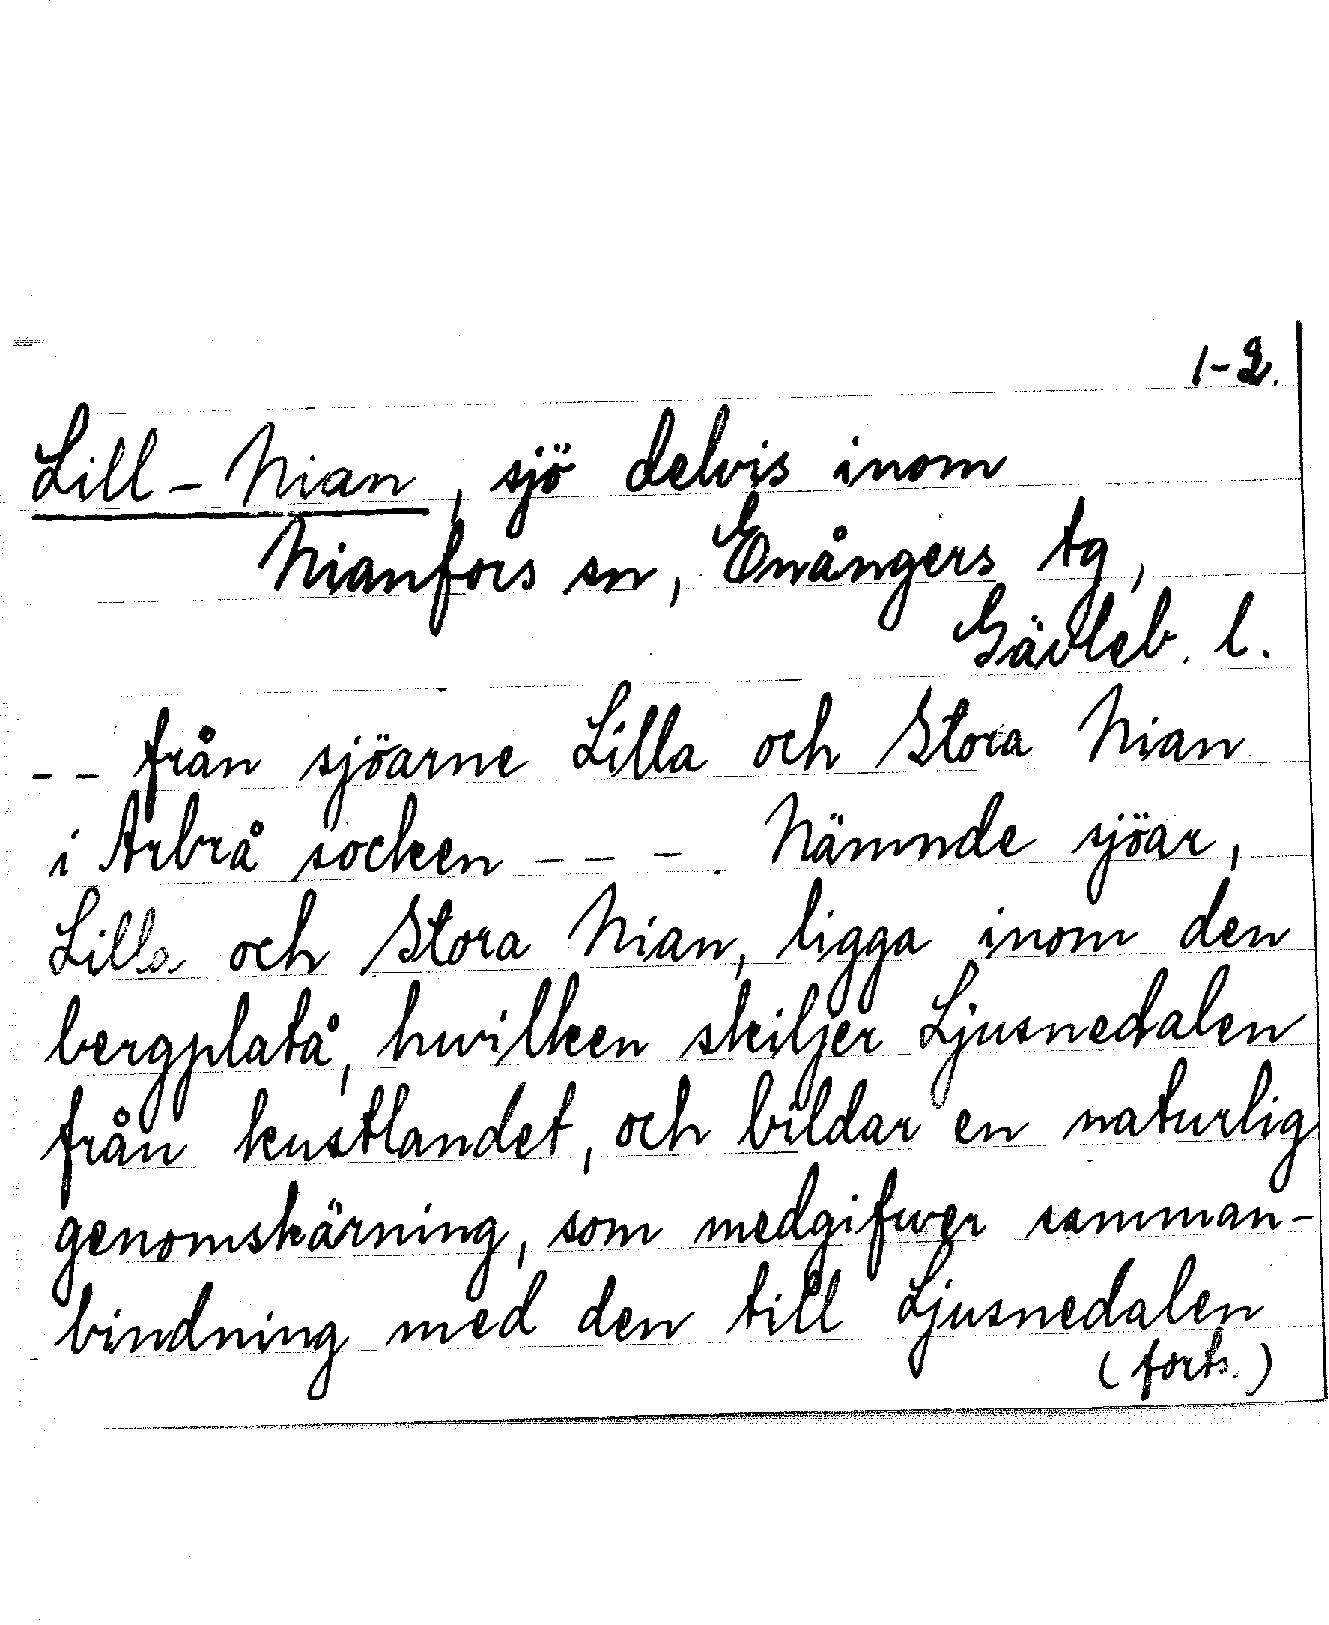 1-2.
Lill-Nian, sjö delvis inom
Nianfors sn, Enångers tg,
Gävleb. l.
-- från sjöarne Lilla och Stora Nian
i Arbrå socken ---. Nämnde sjöar,
Lilla och Stora Nian, ligga inom den
bergplatå, hwilken skiljer Ljusnedalen
från kustlandet, och bildar en naturlig
genomskärning, som medgifwer samman-
bindning med den till Ljusnedalen
(forts.)